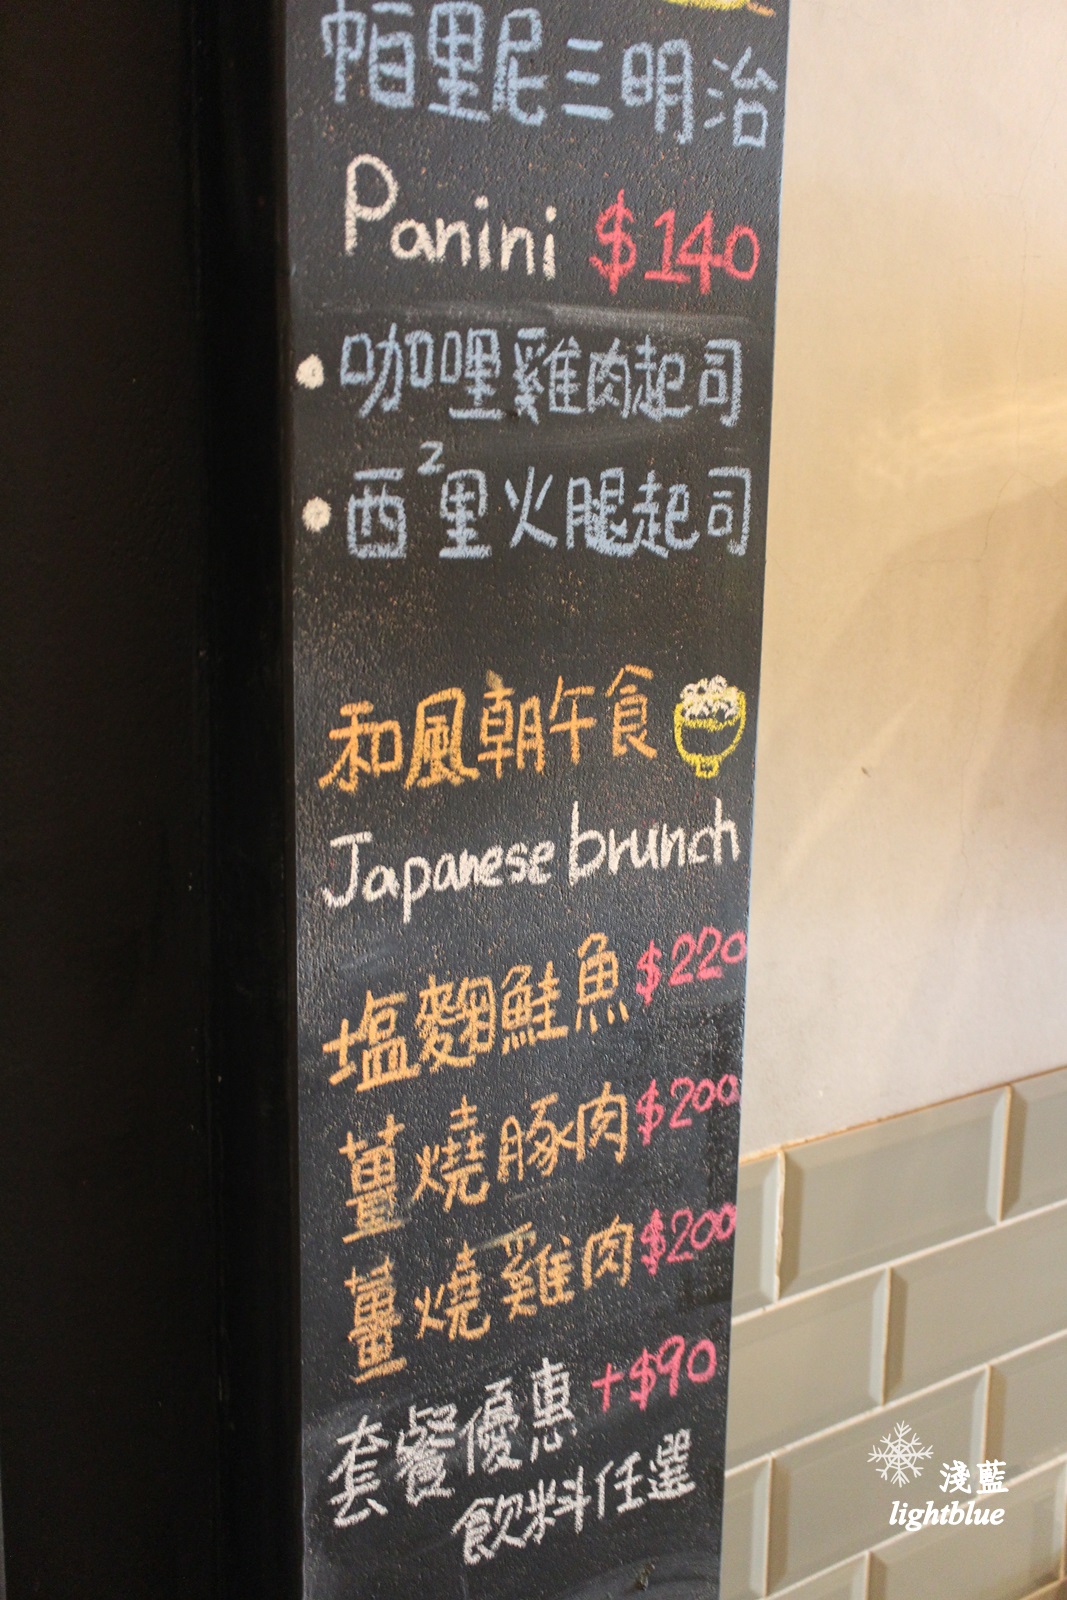 帕里尼三明治
Panini $140
• 咖哩雞肉起司
• 西²里火腿起司
和風朝午食
Japanese brunch
塩麴鮭魚 $220
薑燒豚肉 $200
薑燒雞肉 $200
套餐優惠 +$90
飲料任選
淺藍
lightblue